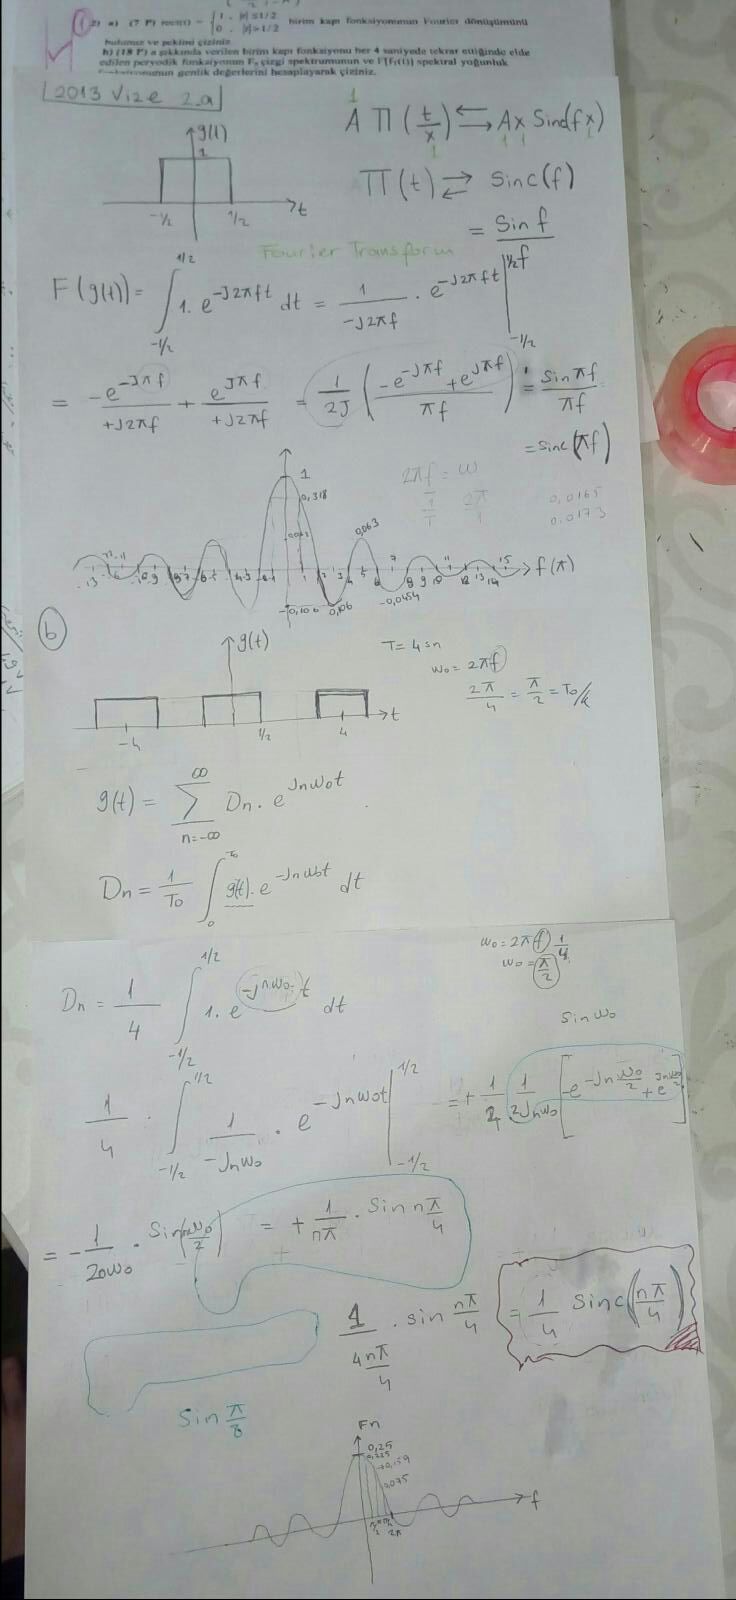 2) a) (7 P) rect(t) = { 1 , |t| ≤ 1/2
0 , |t| > 1/2 birim kapı fonksiyonunun Fourier dönüşümünü
bulunuz ve şeklini çiziniz.
b) (18 P) a şıkkında verilen birim kapı fonksiyonu her 4 saniyede tekrar ettiğinde elde
edilen peryodik fonksiyonun Fn çizgi spektrumunun ve F[Fr(t)] spektral yoğunluk
genlik değerlerini hesaplayarak çiziniz.
2013 Vize 2.a
1
A Π(t/x) ⇌ Ax Sinc(fx)
1 1 1 1
g(t)
1
-1/2 1/2 t
Π(t) ⇌ Sinc(f)
= Sin f / f
Fourier Transform
F(g(t)) = ∫_{-1/2}^{1/2} 1. e^{-J2πft} dt = 1/(-J2πf) . e^{-J2πft} |_{-1/2}^{1/2}
= -e^{-Jπf}/(+J2πf) + e^{Jπf}/(+J2πf) = 1/2J ( (-e^{-Jπf} + e^{Jπf})/πf ) = Sin πf / πf
= sinc(πf)
1
0,318
2πf = w
2π
0,0165
0.0173
0,063
-0,106 0,106
-0,0454
f(π)
b
g(t)
-4 1/2 4 t
T = 4 sn
w₀ = 2πf
2π/4 = π/2 = T₀/
g(t) = Σ_{n=-∞}^{∞} Dn . e^{Jnw₀t}
Dn = 1/T₀ ∫_0^{T₀} g(t) . e^{-Jnw₀t} dt
w₀ = 2πf 1/4
w₀ = π/2
Dn = 1/4 ∫_{-1/2}^{1/2} 1. e^{-Jnw₀t} dt
Sin w₀
1/4 . ∫_{-1/2}^{1/2} 1/(-Jnw₀) . e^{-Jnw₀t} |_{-1/2}^{1/2} = + 1/2 1/(2Jnw₀) [ -e^{-Jnw₀/2} + e^{Jnw₀/2} ]
= - 1/(2nw₀) . Sin(nw₀/2) = + 1/nπ . Sin nπ/4
1/(4nπ/4) . sin nπ/4 = 1/4 Sinc(nπ/4)
Sin π/8
Fn
0,25
0,225
+0,159
0,075
π/2
2π
f